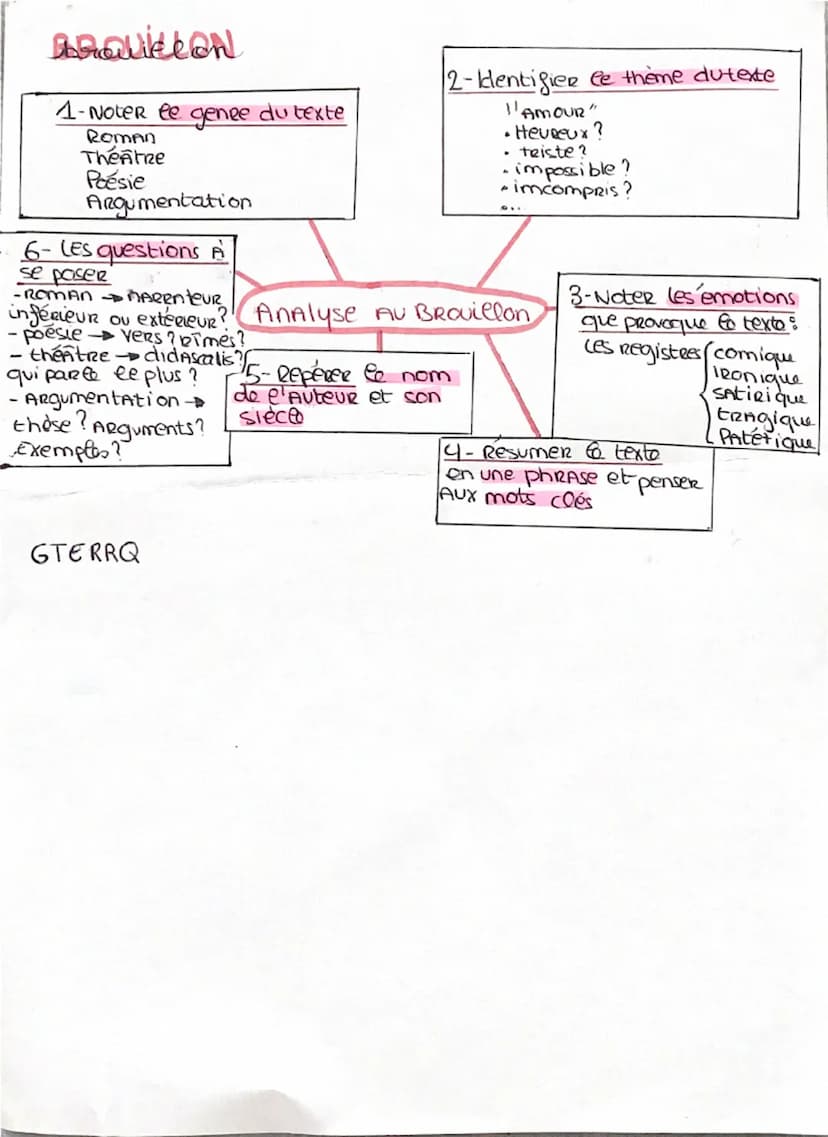 BROUILLON
brouillon
1-Noter le genre du texte
Roman
Théâtre
Poésie
Argumentation
2-Identifier le thème du texte
"AMOUR"
• Heureux ?
• triste ?
• impossible ?
• imcompris ?
• ...
6- Les questions à
se poser
- Roman → narrenteur
inférieur ou extérieur ?
- poésie → vers ? rîmes ?
- théâtre → didascalis ?
qui parle le plus ?
- Argumentation →
thèse ? Arguments ?
Exemples ?
Analyse au Brouillon
3-Noter les émotions
que provoque le texte :
les registres
comique
ironique
satirique
tragique
patétique
5- Repérer le nom
de l'auteur et son
siècle
4- Résumer le texte
en une phrase et penser
aux mots clés
GTERRQ